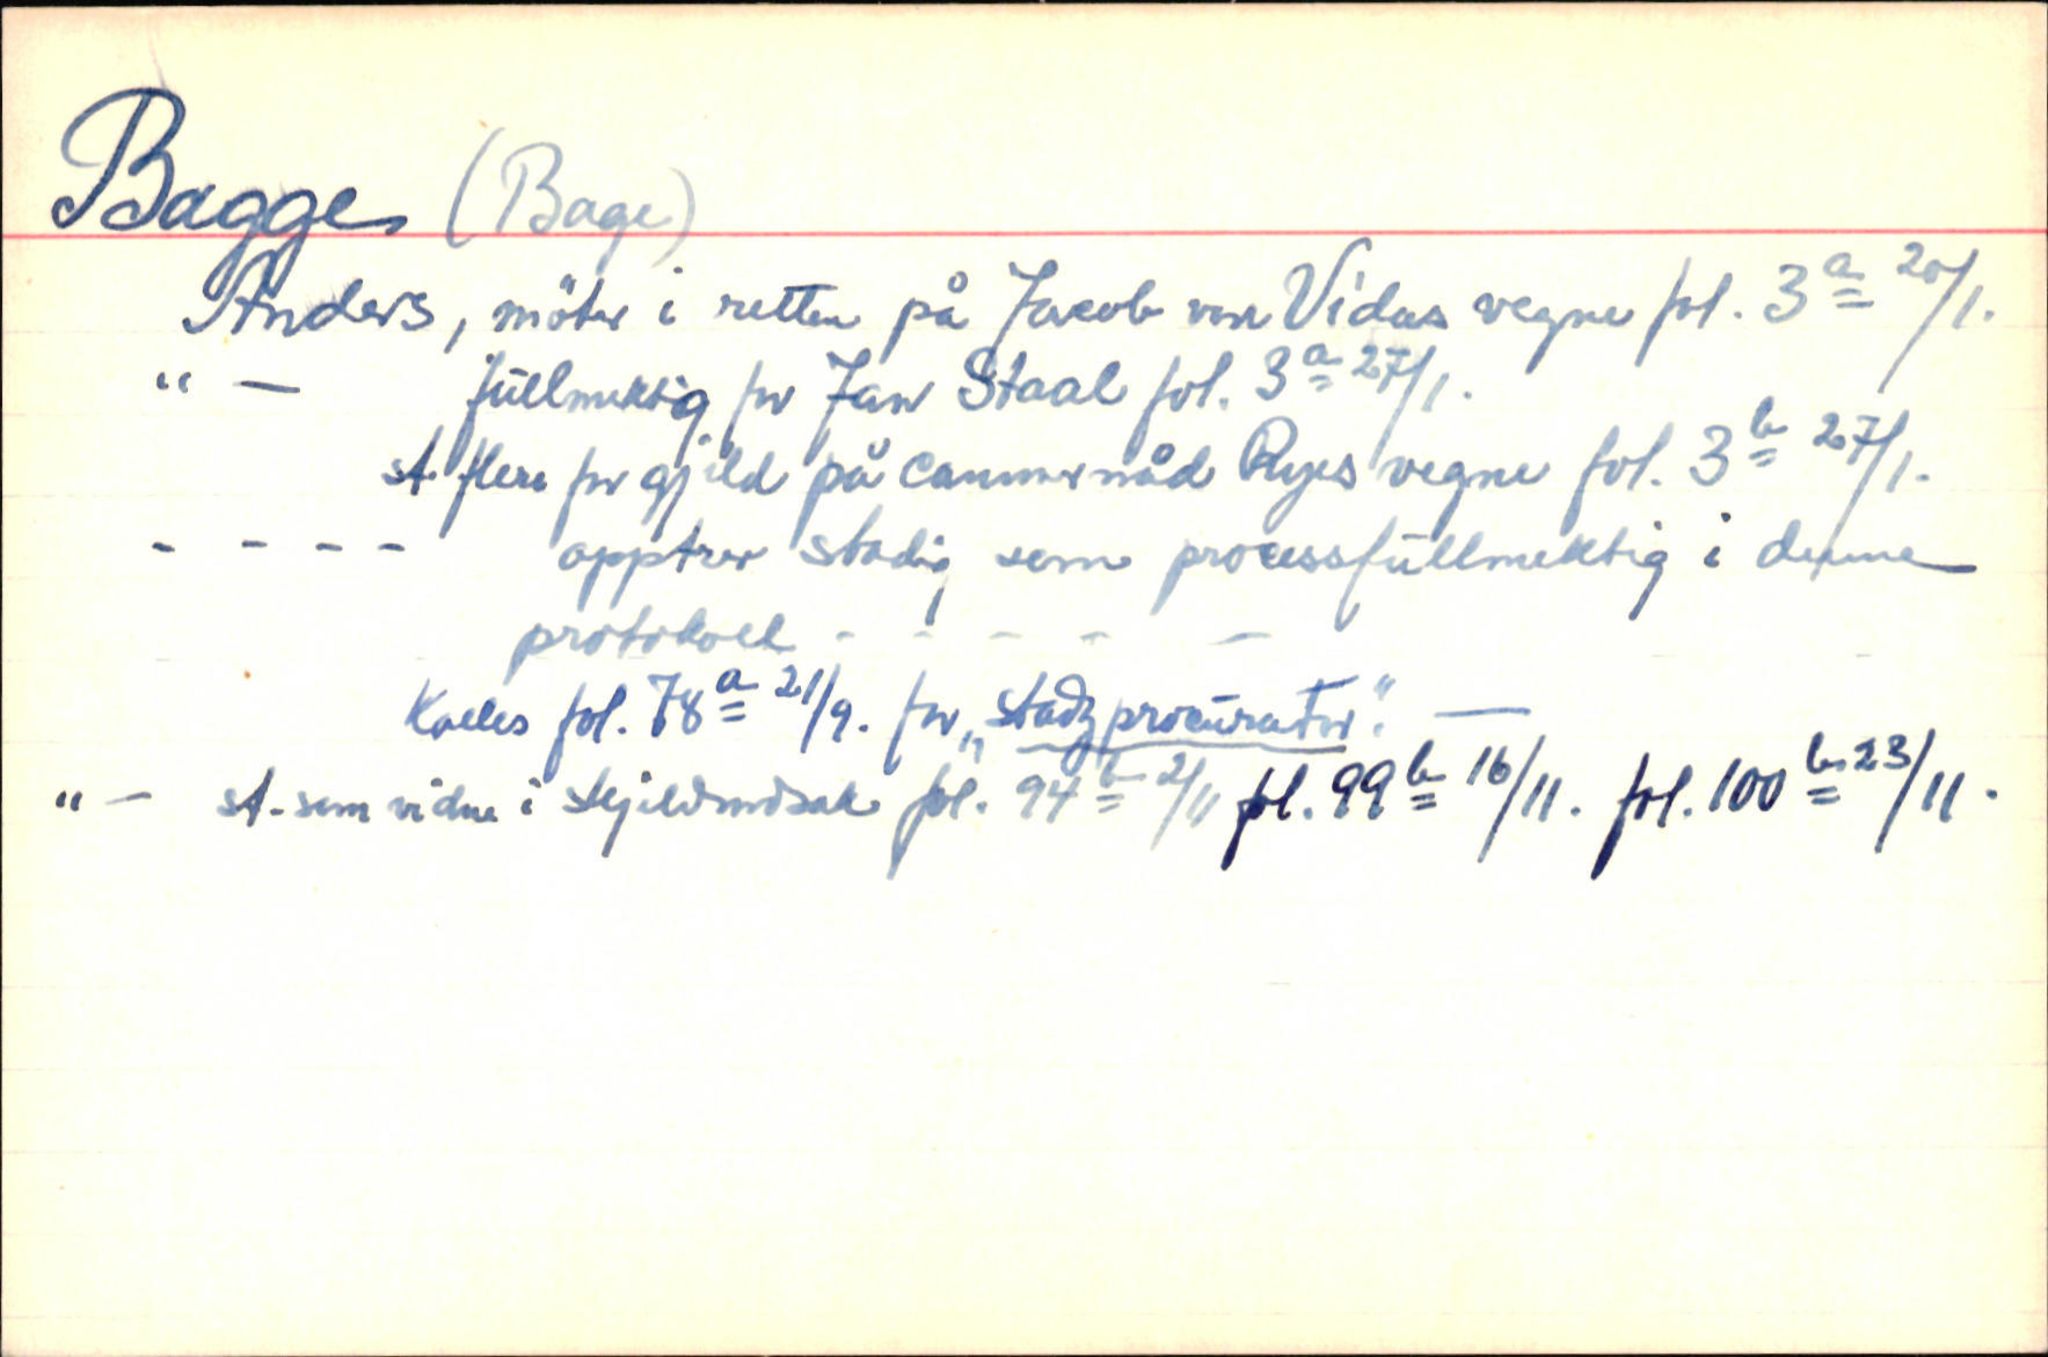 Bagge (Bage)
Anders, möter i retten på Jacob von Vidas vegne fol. 3a 20/1.
"— fullmektig for Jan Staal fol. 3a 27/1.
st. flere for gjeld på Cammerråd Ryes vegne fol. 3b 27/1.
- - - - opptrer stadig som processfullmektig i denne
protokoll - - - - -
Kalles fol. 78a 21/9. for „stadz procurator". —
"— st. som vidne i skjeldsordsak fol. 94b 2/11 fol. 99b 16/11. fol. 100b 23/11.